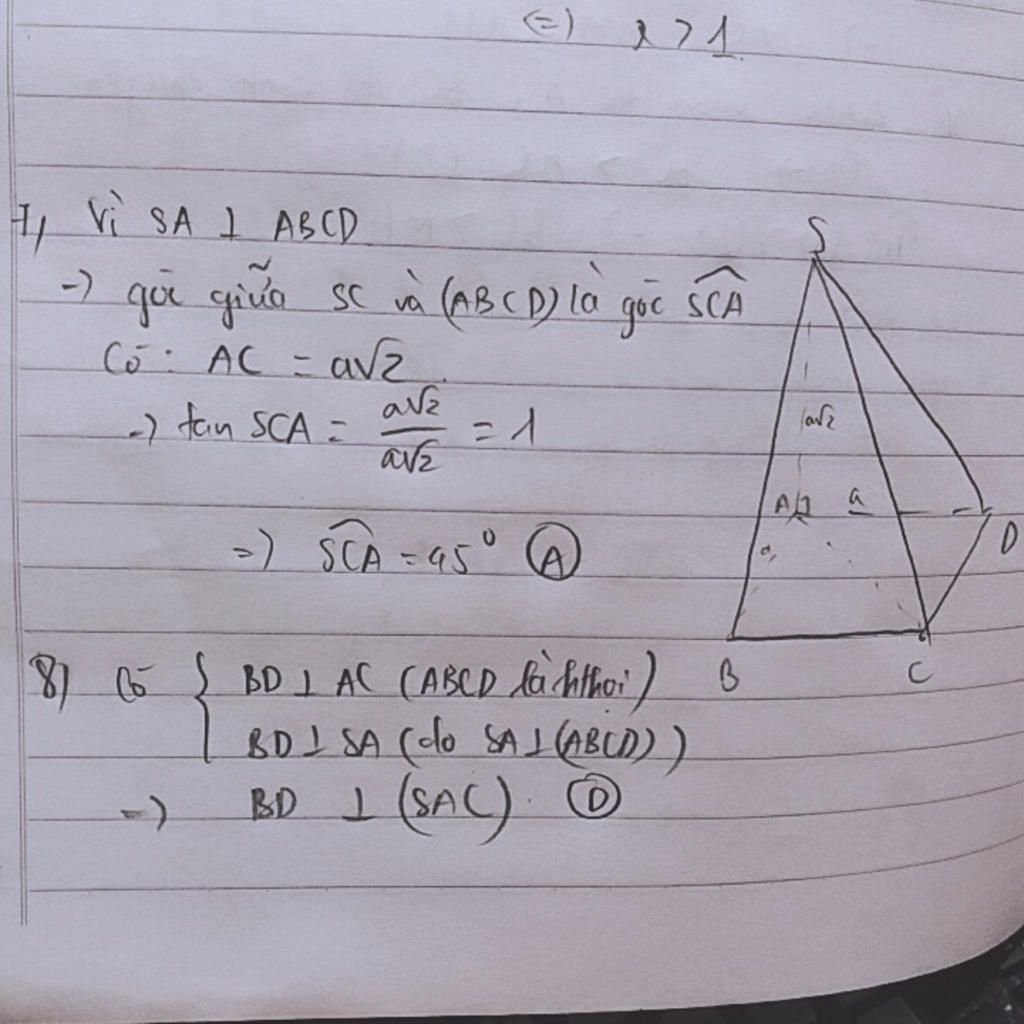 (=) x > 1
7, Vì SA ⊥ ABCD
-> góc giữa SC và (ABCD) là góc SCA
Có: AC = a√2
-> tan SCA = a√2 / a√2 = 1
=> SCA = 45° (A)
8) Có { BD ⊥ AC (ABCD là hthoi)
BD ⊥ SA (do SA ⊥ (ABCD))
-> BD ⊥ (SAC). (D)
S
a√2
A
a
D
a
B
C